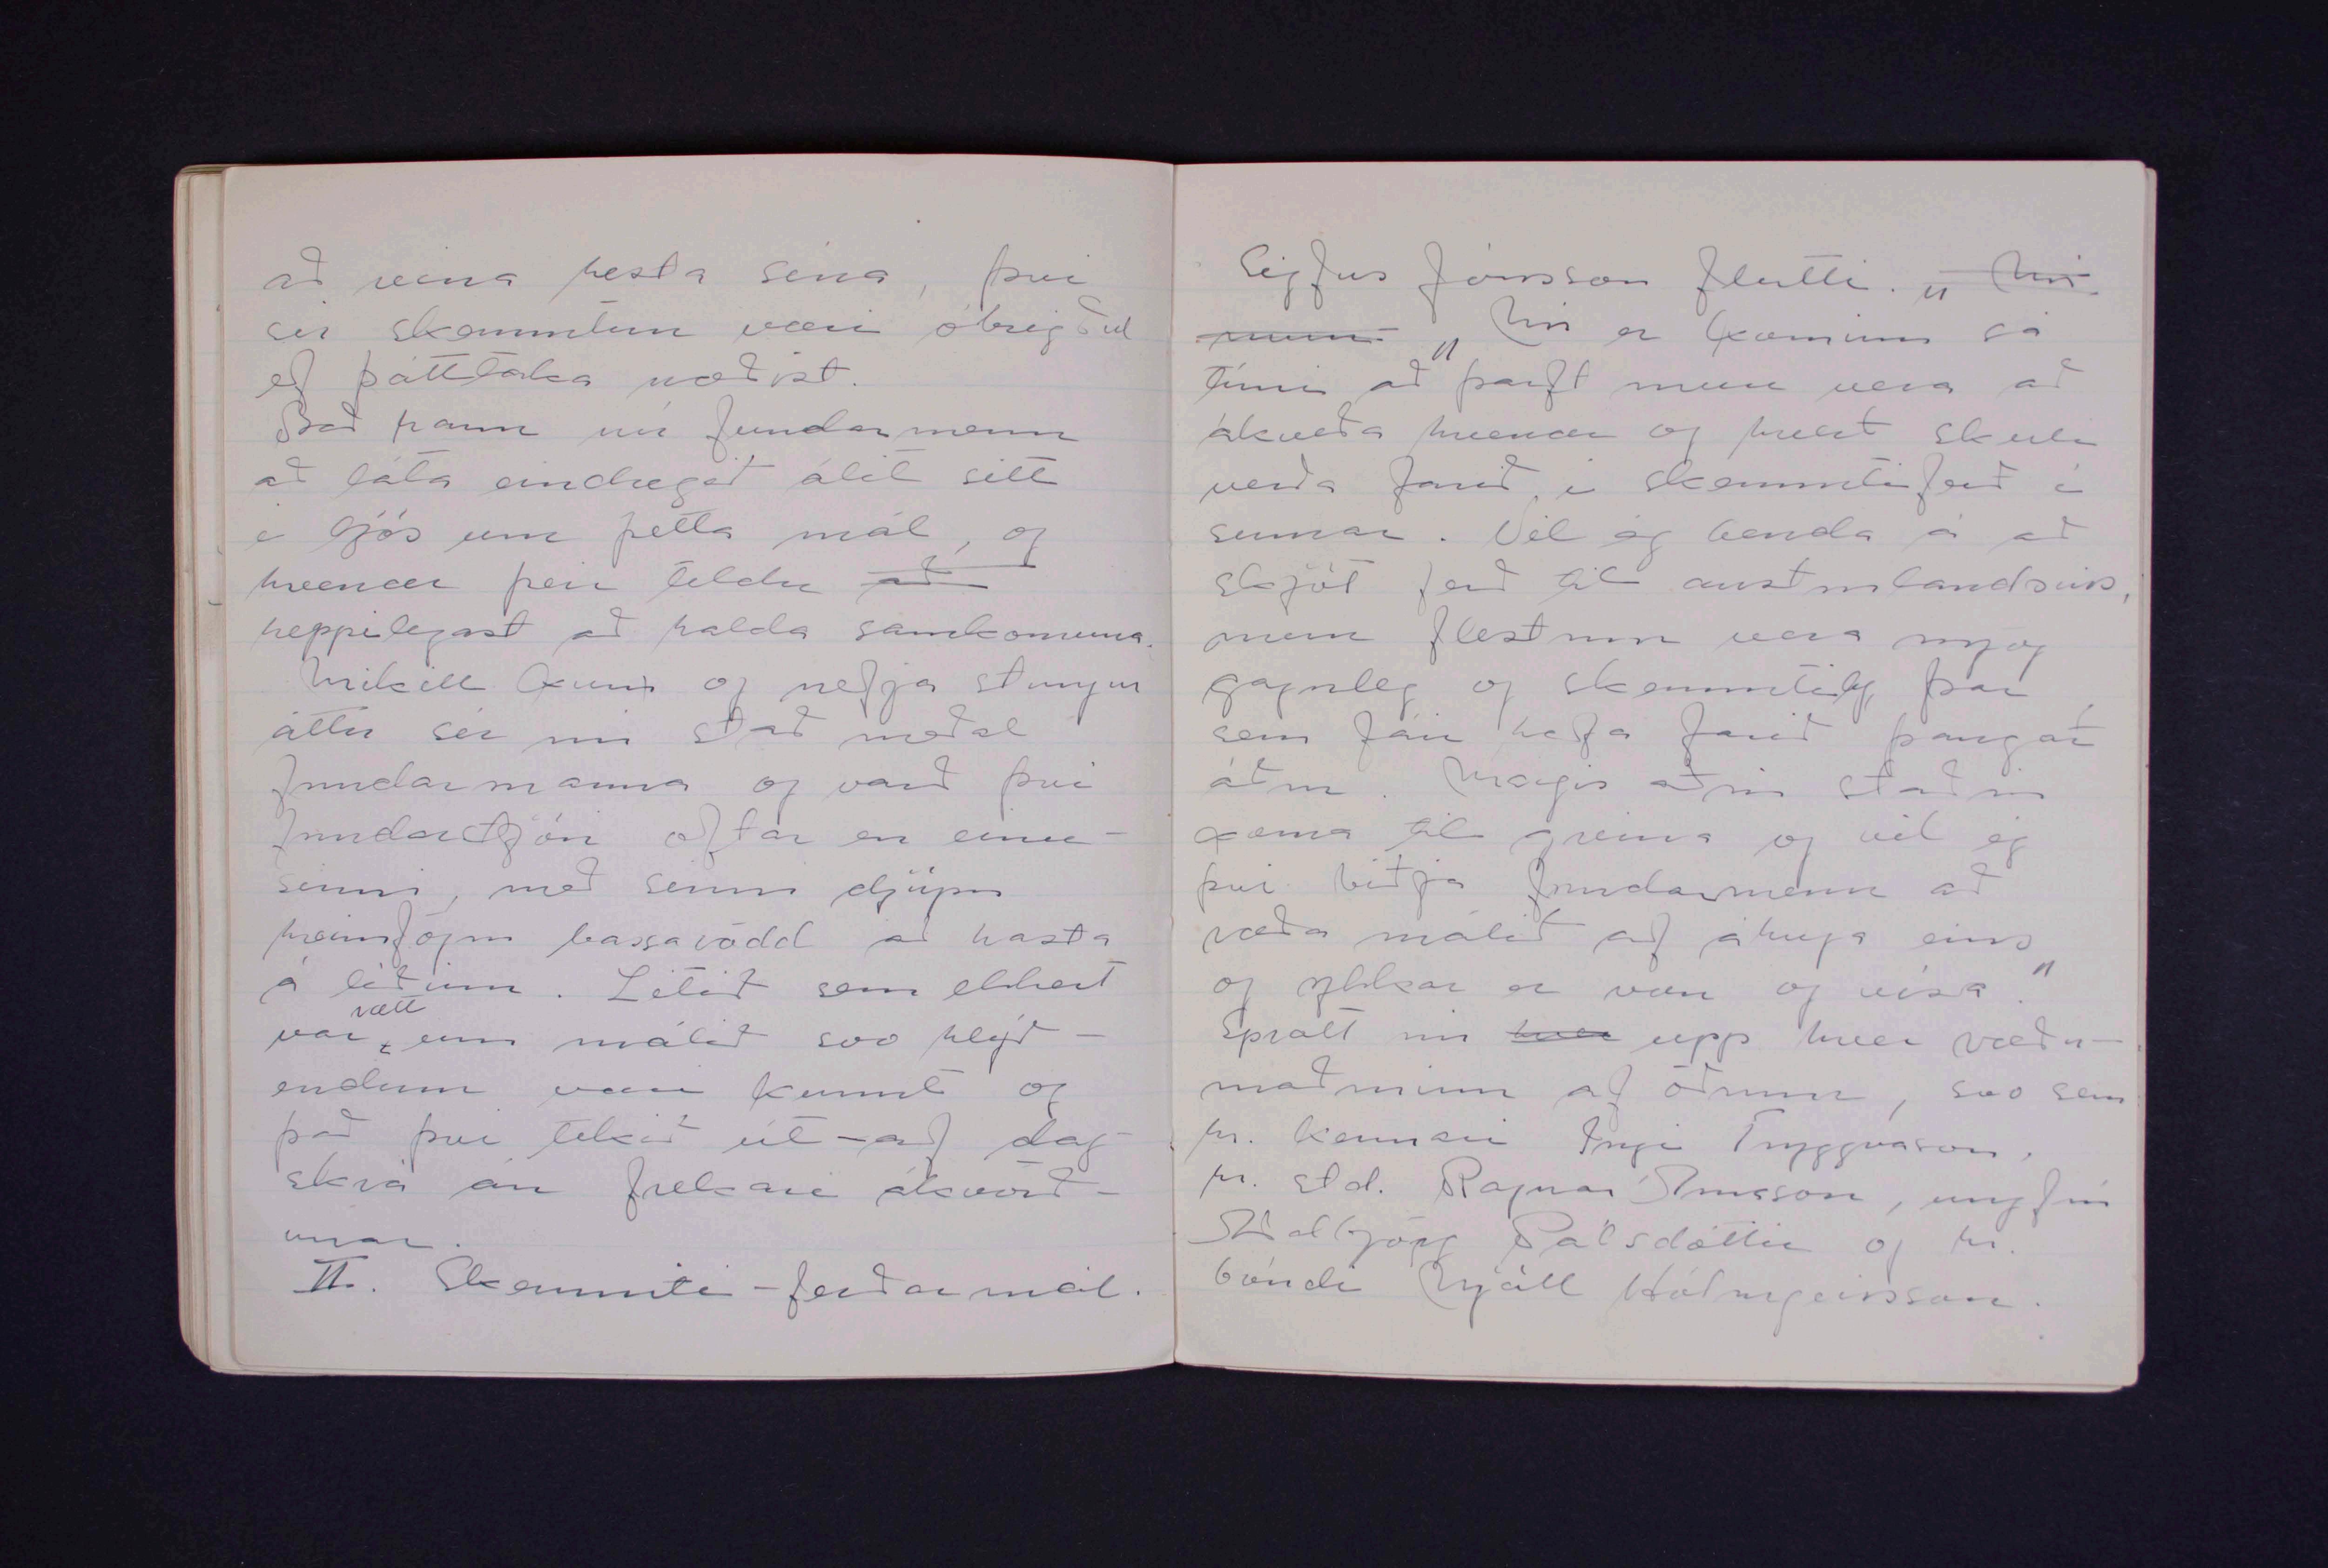 að reina hesta sína, því
sér skemmtun væri óbrigðul
ef þátttaka næðist.
Bað hann nú fundarmenn
að láta eindregið álit sitt
í ljós um þetta mál, og
hvenær þeir teldu að
heppilegast að halda samkomuna.
Mikill kurr og nefja stungur
áttu sér nú stað meðal
fundarmanna og varð því
fundarstjóri oftar en einu-
sinni, með sinni djúpu
hreimfögru bassarödd að hasta
á líðinn. Lítið sem ekkert
var rætt um málið svo hlýð-
endum væri kunnt og
það því tekið út-af dag-
skrá án frekari ákvörð-
unar.
II. Skemmti-ferðarmál.
Sigfus Jónsson flutti. „Nú
mun „Nú er kominn sá
tími að þarft mun vera að
ákveða hvenær og hvert skuli
verða farið, í skemmtiferð í
sumar. Vil ég benda á að
skjót ferð til austurlandsins,
mun flestum vera mjög
gagnleg og skemmtileg þar
sem fáir hafa farið þangað
áður. Margir aðrir staðir
koma til greina og vil ég
því biðja fundarmenn að
ræða málið af áhuga eins
og ykkar er von og vísa."
Spratt nú hver upp hver ræðu-
maðurinn af öðrum, svo sem
hr. kennari Ingi Tryggvason,
hr. std. Ragnar Árnason, ungfrú
Aðalbjörg Pálsdóttir og hr.
bóndi Njáll Hólmgeirsson.